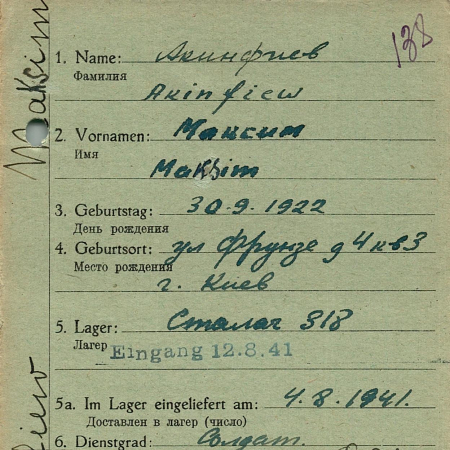 Maksim
138
1. Name: Акинфиев
Фамилия
Akinfiew
2. Vornamen: Максим
Имя
Maksim
3. Geburtstag: 30.9.1922
День рождения
4. Geburtsort: ул Фрунзе д 4 кв 3
Место рождения
г. Киев
5. Lager: Сталаг 318
Лагерь
Eingang 12.8.41
5a. Im Lager eingeliefert am: 4.8.1941.
Доставлен в лагерь (число)
6. Dienstgrad: Солдат.